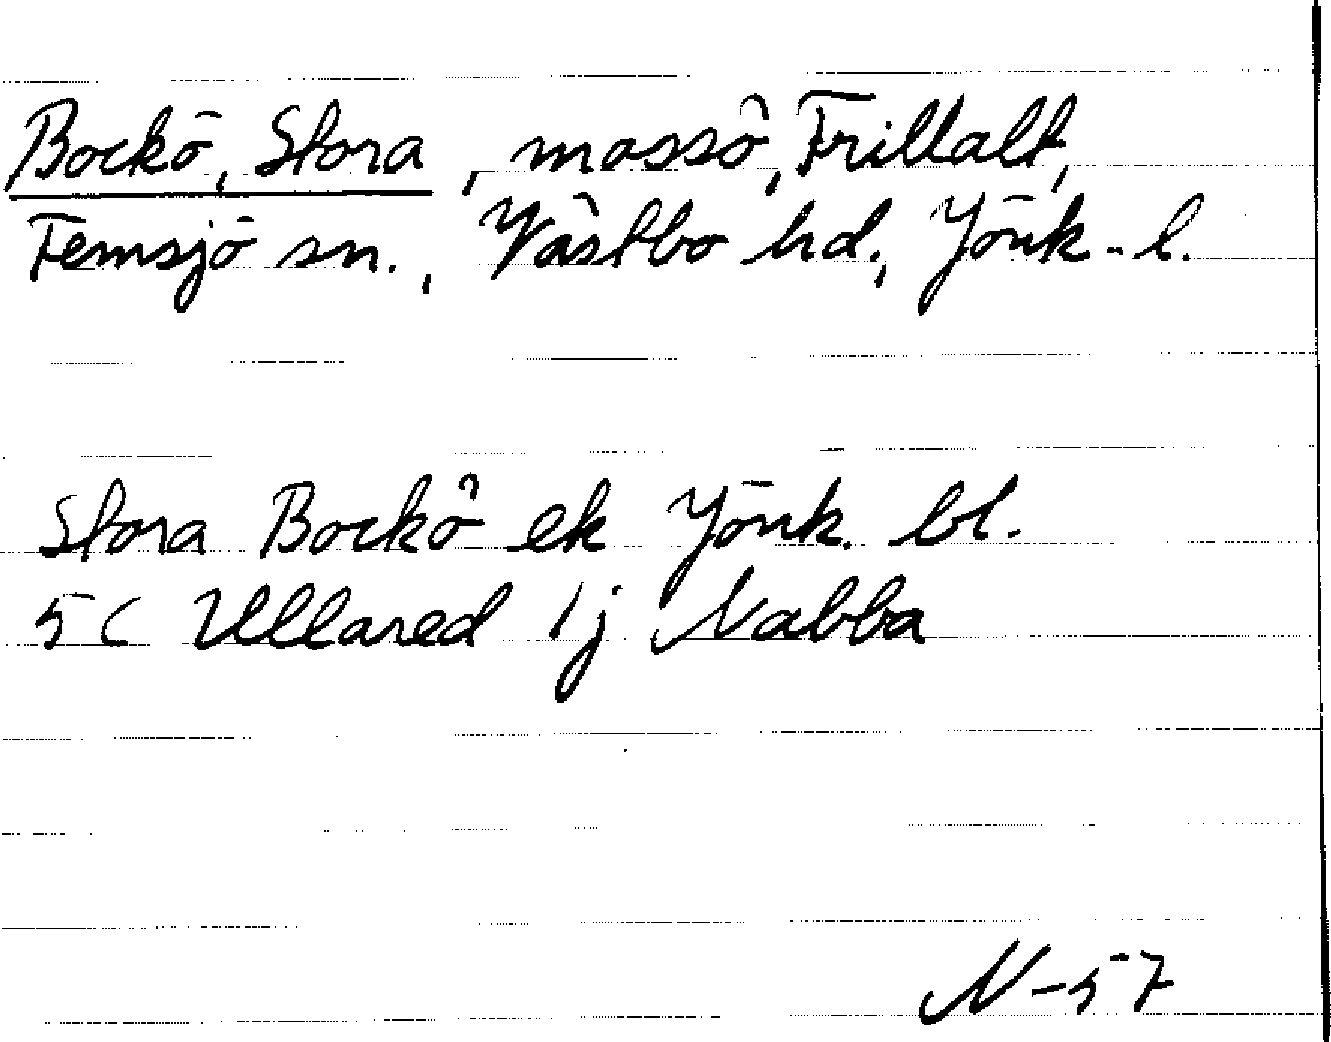 Bockö, Stora, mossö, Frillalt,
Femsjö sn., Västbo hd., Jönk-l.
Stora Bockö ek Jönk. bl.
5C Ullared 1j Nabba
N-57